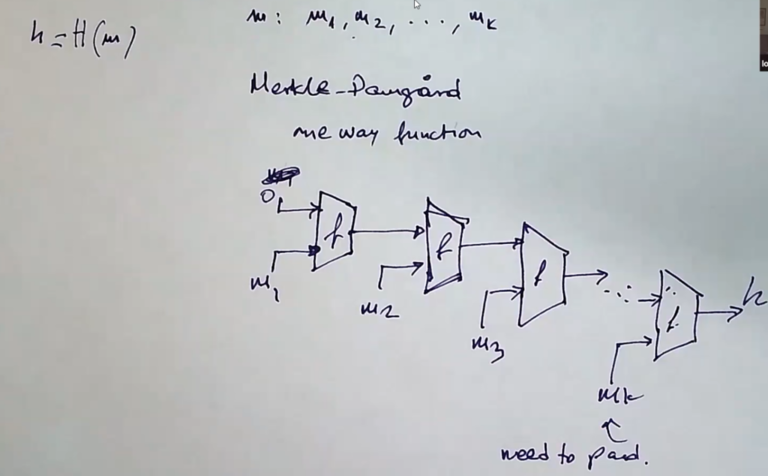 h = H(m)
m: m1, m2, ..., mk
Merkle-Damgård
one way function
0
f
f
f
...
f
h
m1
m2
m3
mk
need to pad.